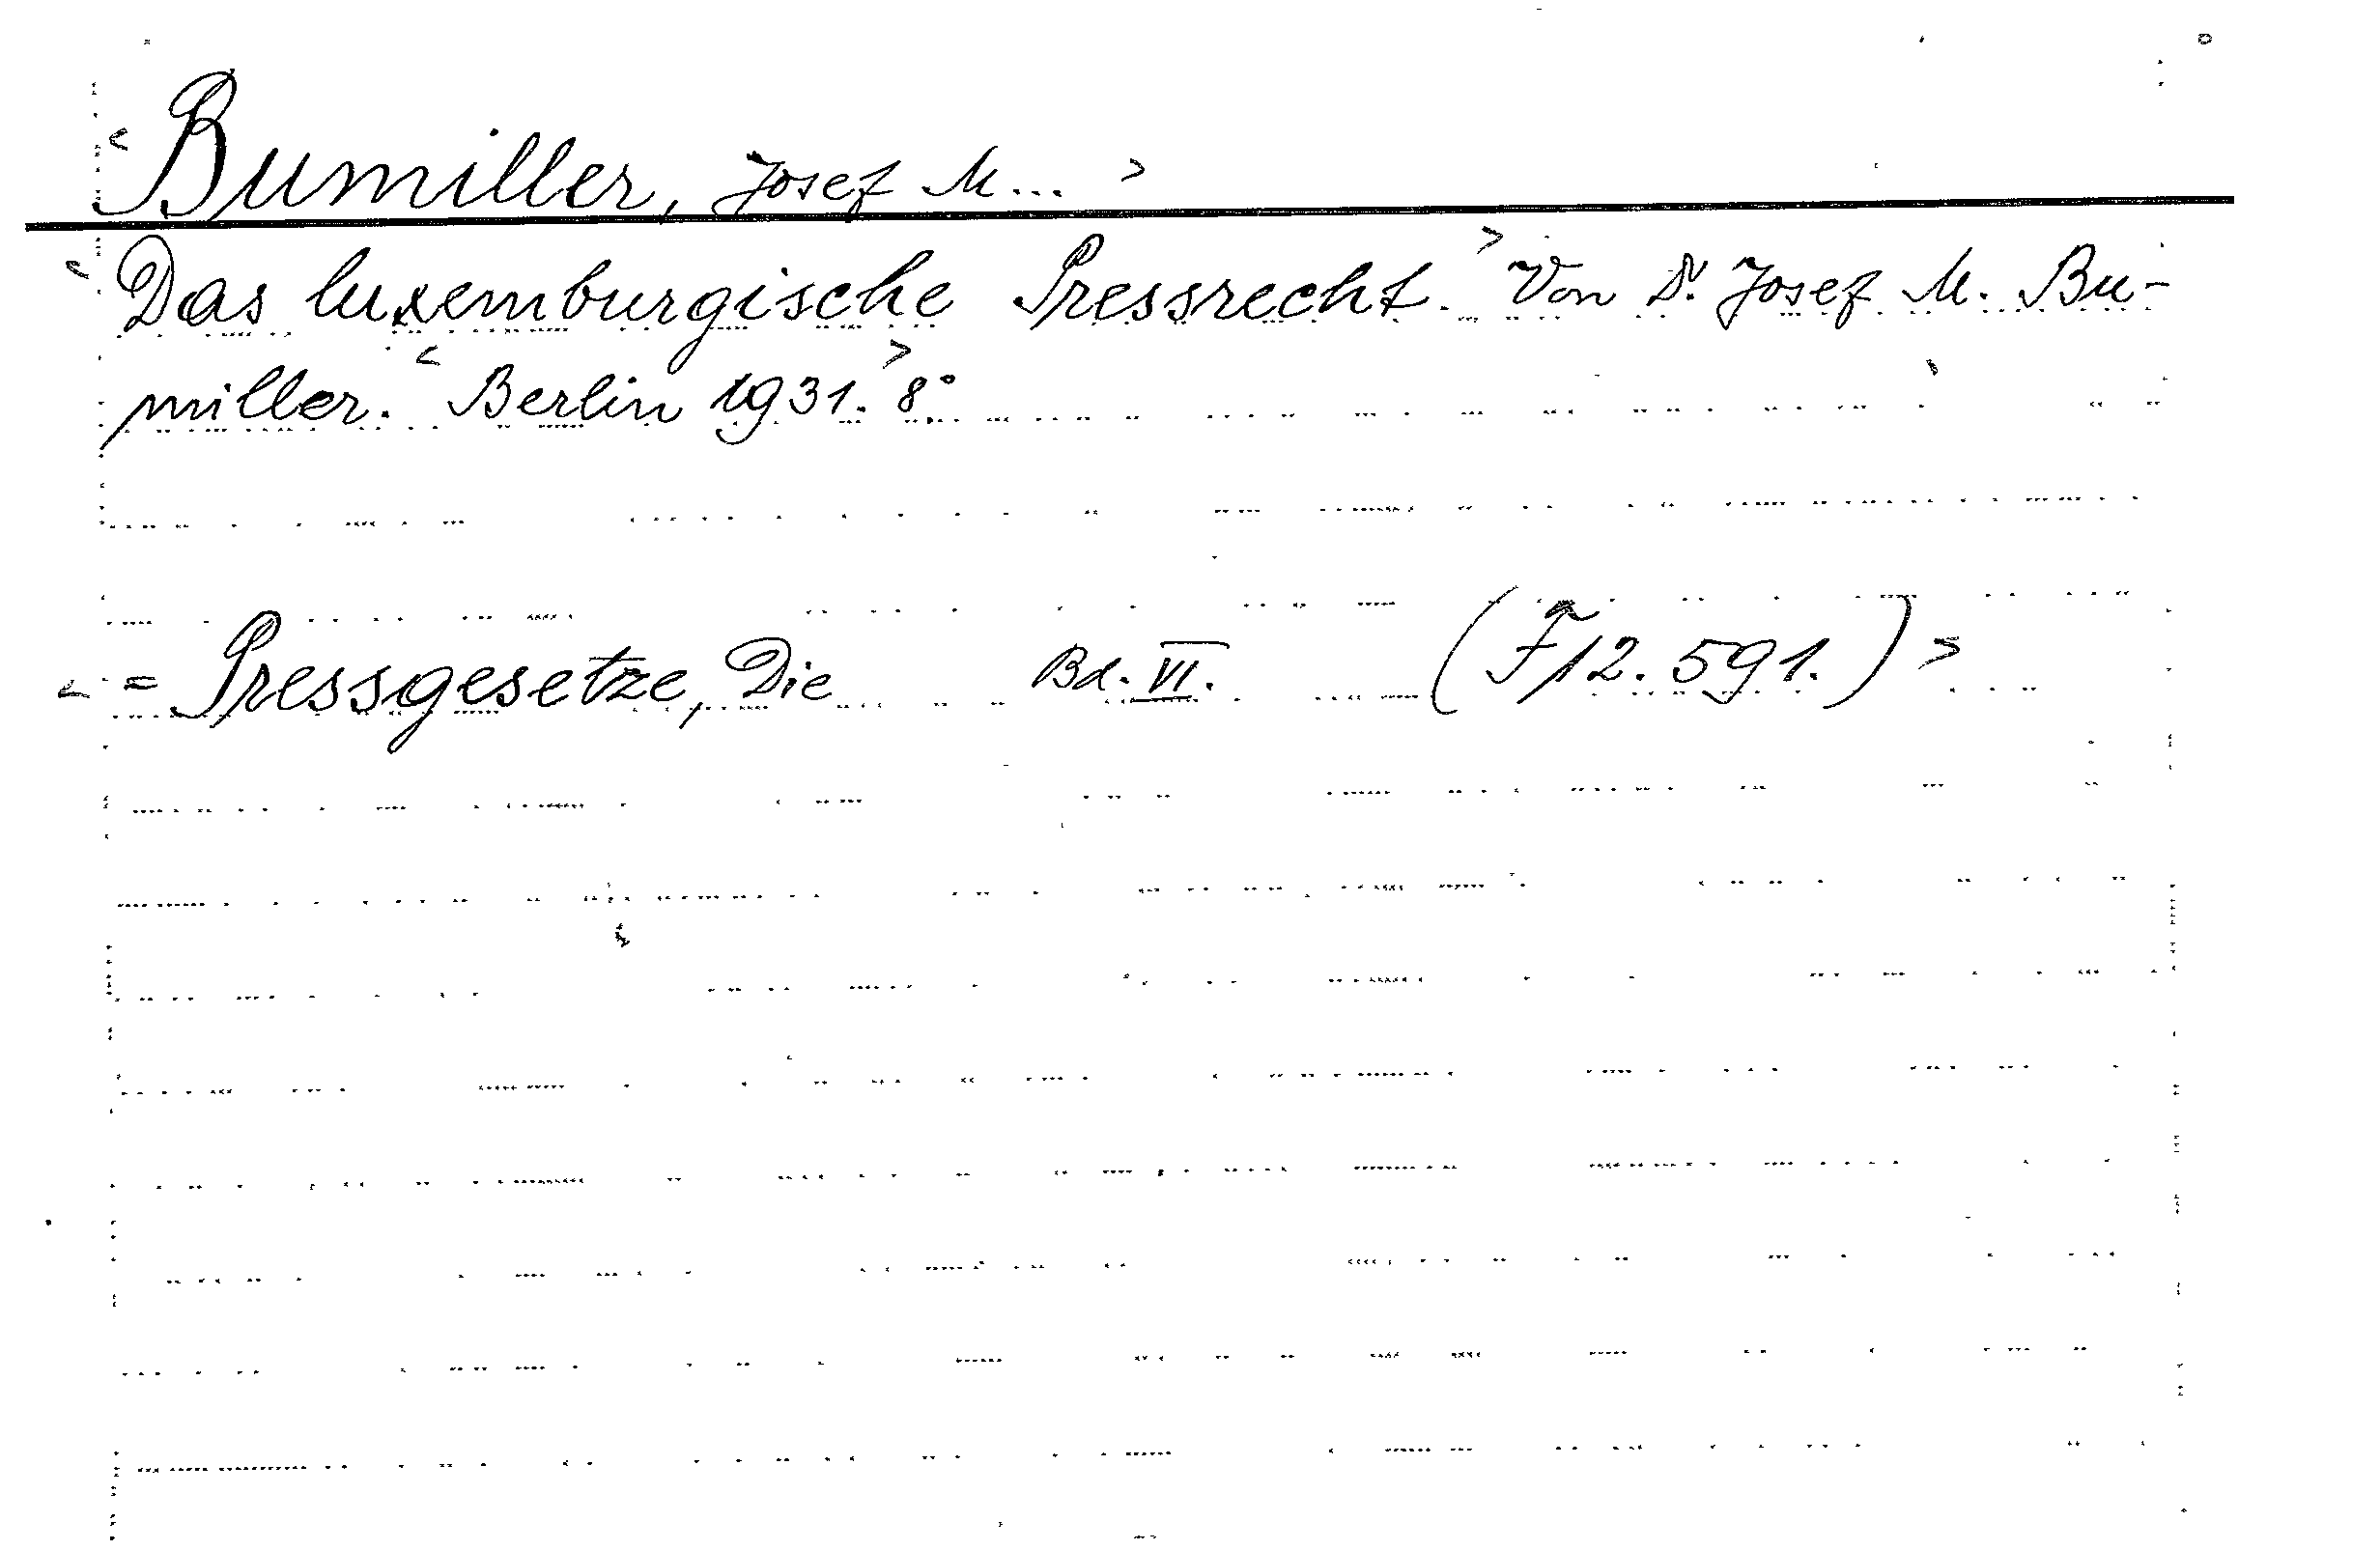 <Bumiller, Josef M...>
<Das luxemburgische Pressrecht.> Von Dr. Josef M. Bu-
miller. <Berlin 1931.> 8°.
<= Pressgesetze, Die Bd. VI. (F12.591.)>